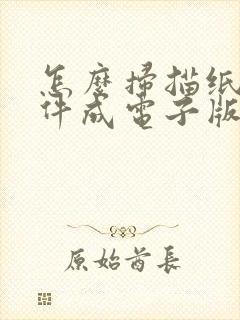 怎麼掃描纸
件成電子版
原始酋長